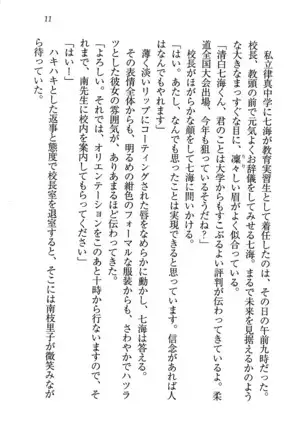 私立律真中学に七海が教育実習生として着任したのは、その日の午前九時だった。
校長、教頭の前で元気よくお辞儀をしてみせる七海。まるで未来を見据えるかのす
なまっすぐな目に、凛々しい眉がよく似合っている。
「清白七海くん。君のことは大学からもすこぶるよい評判が伝わってきている。柔
道全国大会出場、今年も狙っているそうだね？」
校長がにこやかな顔をして七海に握手を求める。
「はい。あたし、なんでも思ったことは実現できると思っています。信念があれば人
薄く淡いリップにコーティングされた唇をなめらかに動かし、七海は答える。
その表情全体からも、明るめの紺色のフォーマルな服装からも、さわやかでハツラ
ツとした彼女の雰囲気が、あまるほど伝わってきた。
「よろしい。それでは、オリエンテーションをこのあと十時から行ないますので、そ
れまでは、南先生に校内を案内してもらってください」
「はい！」
ハキハキとした返事と態度で校長室を退室すると、そこには南枝里子が微笑みなが
ら待っていた。
11